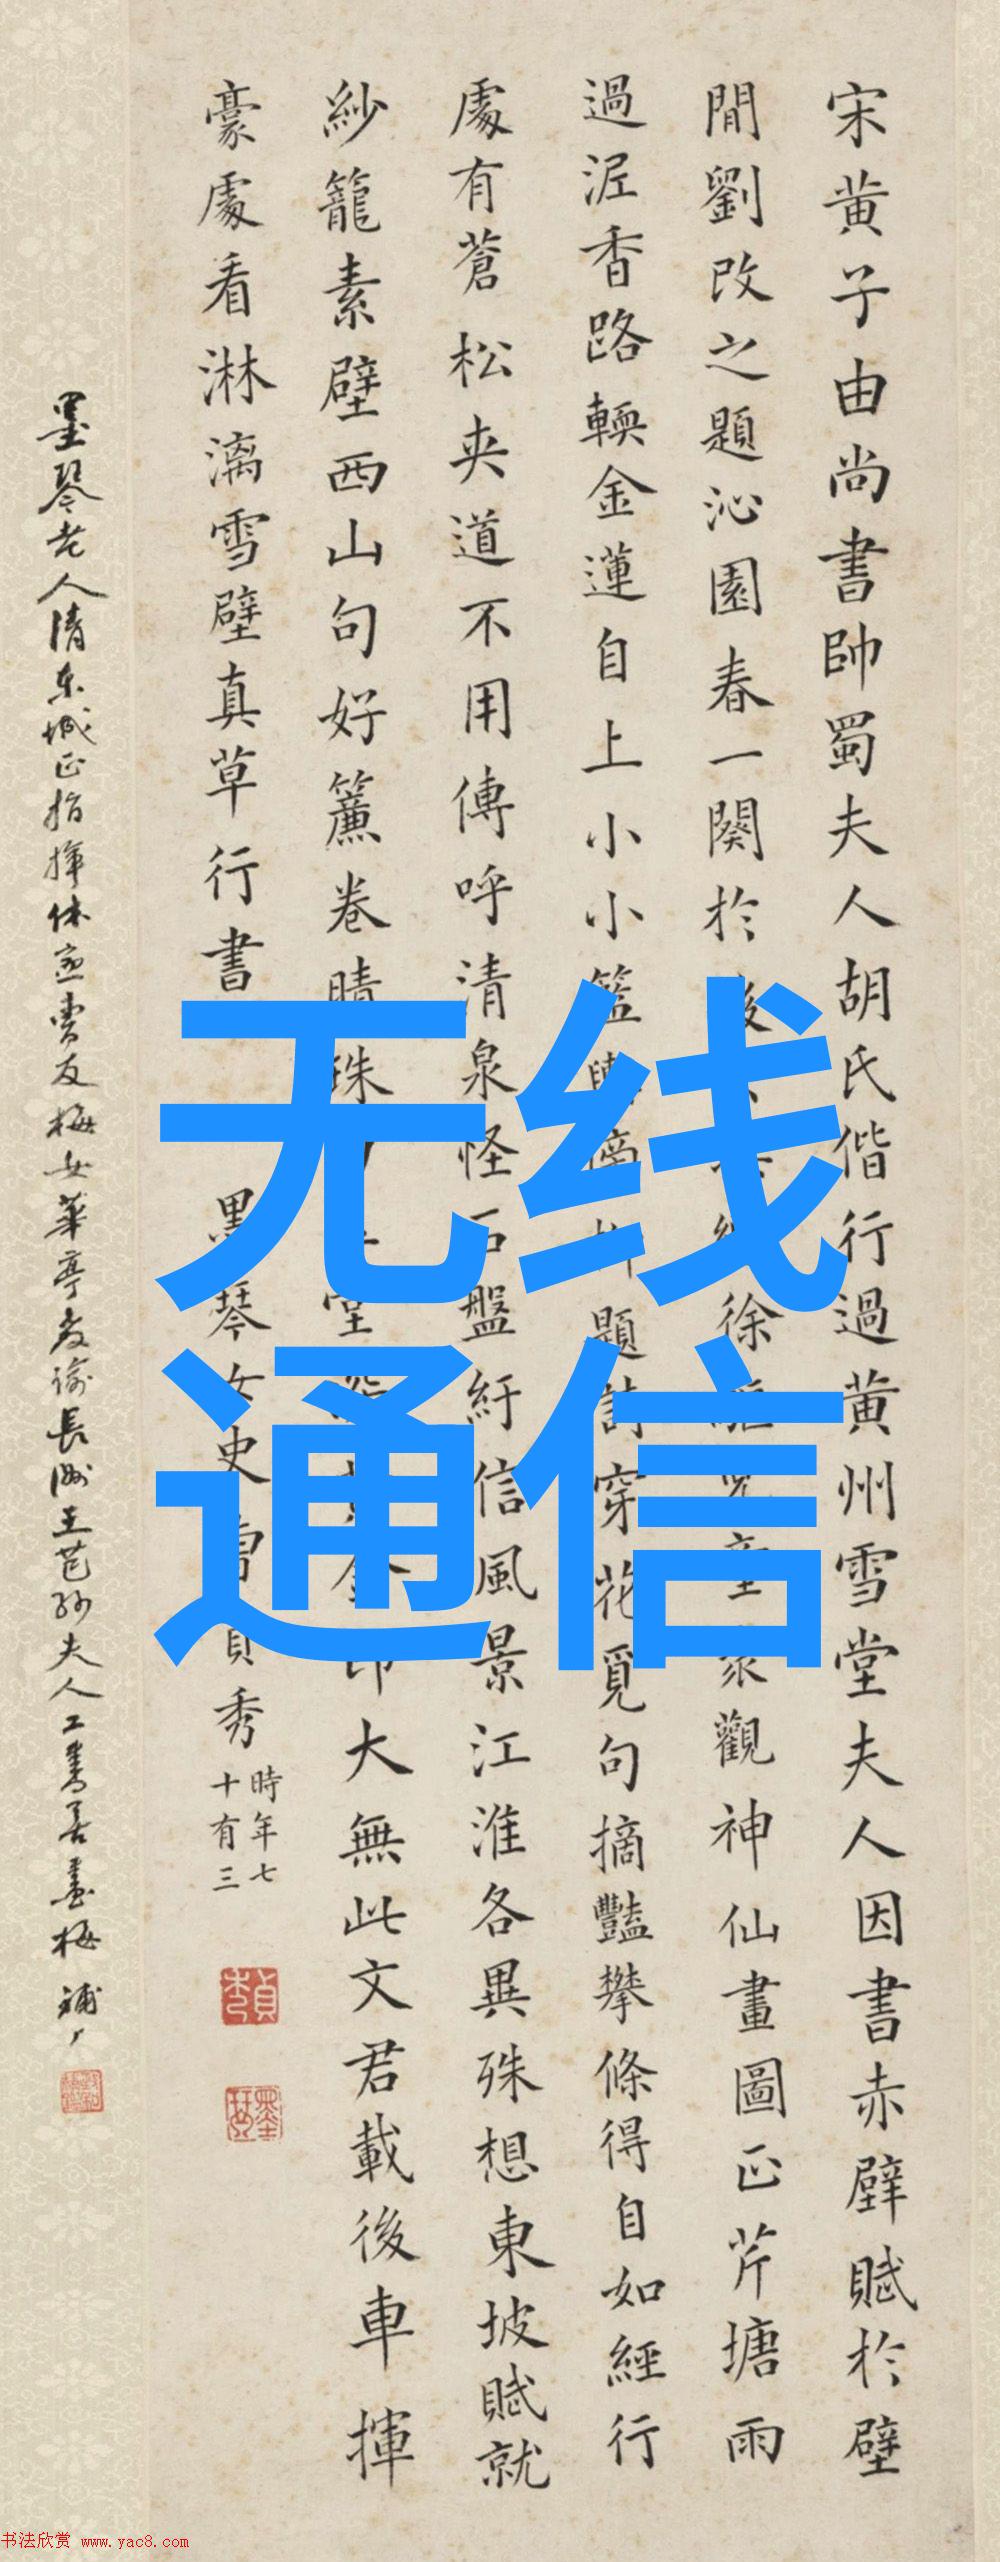 宋黄子由尚書帥蜀夫人胡氏偕行過黄州雪堂夫人因書赤壁賦於壁
間劉改之題沁園春一闋於後
徐
觀神仙畫圖正芹塘雨
過泥香路輭金蓮自上小小籃輿傍
題詩穿花覓句摘豔攀條得自如經行
處有蒼松夾道不用傳呼清泉怪石盤紆信風景江淮各異殊想東坡賦就
紗籠素壁西山句好簾卷晴珠
堂
印大無此文君載後車揮
豪處看淋漓雪壁真草行書
墨琴女史曹貞秀
時年七
十有三
墨琴老人清東城正指揮
女華亭教諭長洲王芑孫夫人工書善畫梅
无线
通信
书法欣赏 www.yac8.com